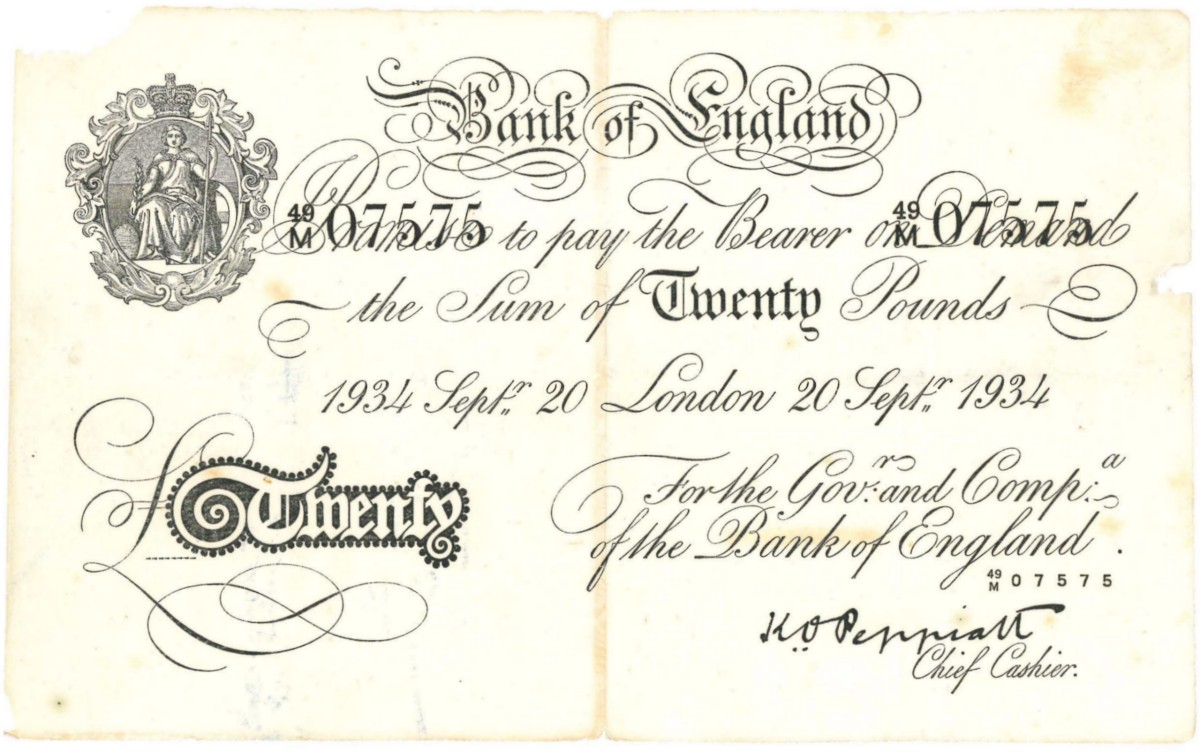 Bank of England
49/M 07575 49/M 07575
I Promise to pay the Bearer on Demand
the Sum of Twenty Pounds
1934 Septr. 20 London 20 Septr. 1934
For the Govr. and Compa.
of the Bank of England.
£Twenty
49/M 07575
K O Peppiatt
Chief Cashier.